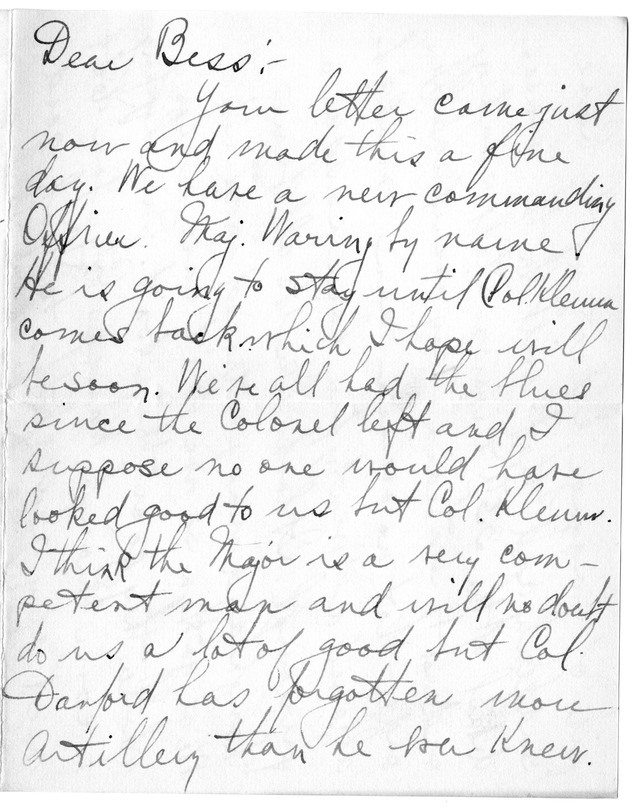 Dear Bess:-
Your letter came just
now and made this a fine
day. We have a new commanding
Officer. Maj. Waring by name.
He is going to stay until Col. Klemm
comes back which I hope will
be soon. We've all had the blues
since the Colonel left and I
suppose no one would have
looked good to us but Col. Klemm.
I think the Major is a very com-
petent man and will no doubt
do us a lot of good but Col.
Danford has forgotten more
Artillery than he ever knew.